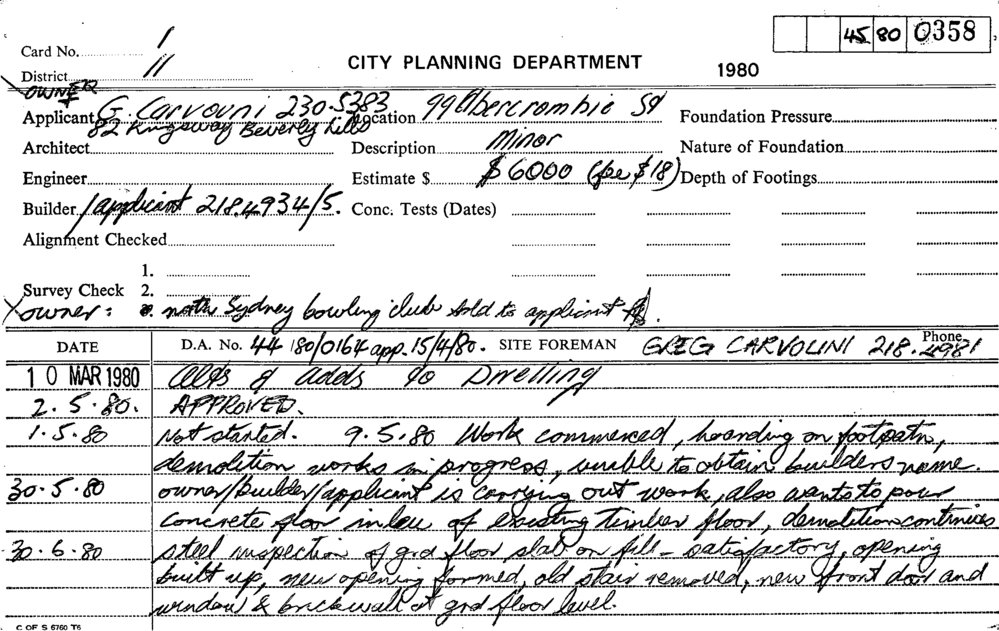 45 80 0358
Card No. 1
CITY PLANNING DEPARTMENT 1980
District 11
OWNER
+
Applicant G. Carvouni 230.5383 Location 99 Abercrombie St Foundation Pressure
82 Kingsway Beverly Hills
Architect Description Minor Nature of Foundation
Engineer Estimate $ $6000 (fee $18) Depth of Footings
Builder / applicant 218.4934/5. Conc. Tests (Dates)
Alignment Checked
1.
Survey Check 2.
X owner: north Sydney bowling club sold to applicant
DATE D.A. No. 44 180/0164 app. 15/4/80. SITE FOREMAN GREG CARVOLINI Phone 218.4981
10 MAR 1980 Alts & adds to Dwelling
2.5.80. APPROVED.
1.5.80 Not started. 9.5.80 Work commenced, hoarding on footpath,
demolition works in progress, unable to obtain builders name.
30.5.80 owner/builder/applicant is carrying out work, also wants to pour
concrete floor inlieu of existing timber floor, demolition continues
30.6.80 steel inspection of grd floor slab on fill - satisfactory, opening
built up, new opening formed, old stair removed, new front door and
window & brickwall at grd floor level.
C OF S 6760 T6